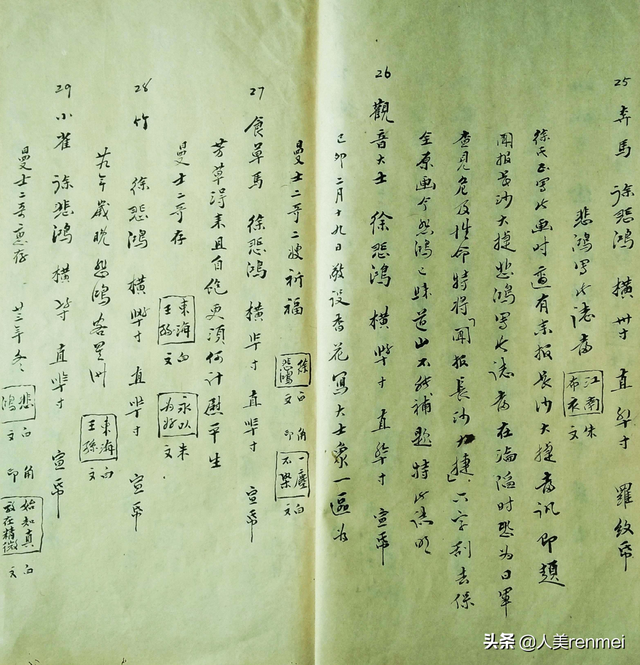 25 奔馬 徐悲鴻 橫 寸 直 寸 羅紋帋
悲鴻寫此誌喜 江南布衣 朱文
徐氏写此画时適有 报長沙大捷喜讯即題
聞报長沙大捷悲鴻写此誌喜在淪陷时恐为日軍
查見危及性命特将「聞报長沙大捷」六字刮去保
全原画今悲鴻已歸道山不能補題特此誌明
26 觀音大士 徐悲鴻 橫 寸 直 寸 宣帋
己卯二月十九日敬设香花寫大士象一區为
曼士二哥二嫂祈福 徐悲鴻 白文 角印 一塵不染 白文
27 食草馬 徐悲鴻 橫 寸 直 寸 宣帋
芳草得来且自飽更須何计慰平生
曼士二哥存 東海王孫 白文 永以为好 朱文
28 竹 徐悲鴻 橫 寸 直 寸 宣帋
年歲晚悲鴻客星洲 東海王孫 白文
29 小雀 徐悲鴻 橫 寸 直 寸 宣帋
曼士二哥惠存 廿三年冬 悲鴻 白文 角印 始知真放在精微 白文
头条 @人美renmei